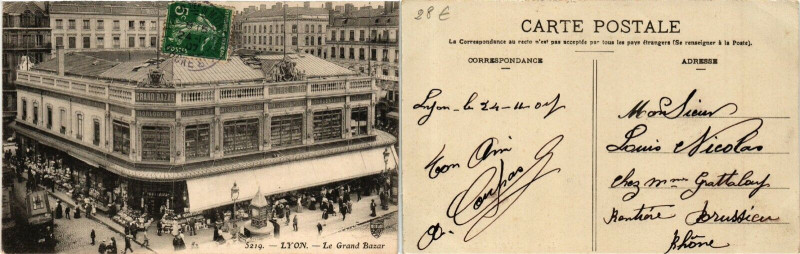 GRAND BAZAR
5219. - LYON. - Le Grand Bazar
28 €
CARTE POSTALE
La Correspondance au recto n'est pas acceptée par tous les pays étrangers (Se renseigner à la Poste).
CORRESPONDANCE
ADRESSE
Lyon_le 24-11-07
Ton Ami
Monsieur
Louis Nicolas
Chez Mme
Rentière
Rhône